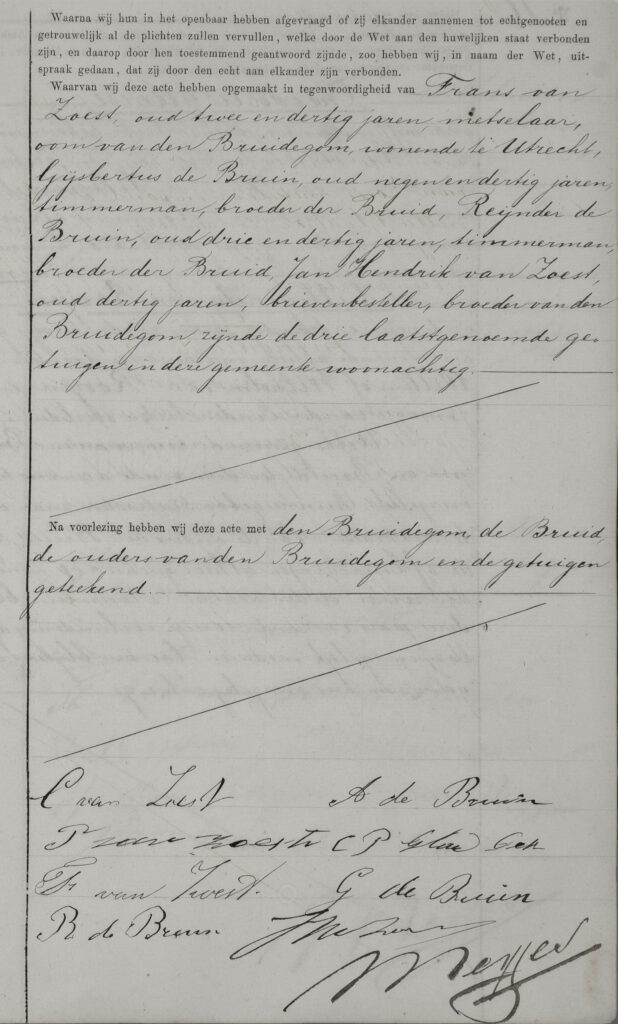 Waarna wij hun in het openbaar hebben afgevraagd of zij elkander aannemen tot echtgenooten en
getrouwelijk al de plichten zullen vervullen, welke door de Wet aan den huwelijken staat verbonden
zijn, en daarop door hen toestemmend geantwoord zijnde, zoo hebben wij, in naam der Wet, uit-
spraak gedaan, dat zij door den echt aan elkander zijn verbonden.
Waarvan wij deze acte hebben opgemaakt in tegenwoordigheid van Frans van
Zoest, oud twee en dertig jaren, metselaar,
oom van den Bruidegom, wonende te Utrecht,
Gijsbertus de Bruin, oud negen en dertig jaren,
timmerman, broeder der Bruid, Reijnder de
Bruin, oud drie en dertig jaren, timmerman,
broeder der Bruid, Jan Hendrik van Zoest,
oud dertig jaren, brievenbesteller, broeder van den
Bruidegom, zijnde de drie laatstgenoemde ge-
tuigen in deze gemeente woonachtig.
Na voorlezing hebben wij deze acte met den Bruidegom, de Bruid,
de ouders van den Bruidegom en de getuigen
geteekend.
C van Zoest A de Bruin
P van Zoest C P
van Zoest. G de Bruin
R de Bruin